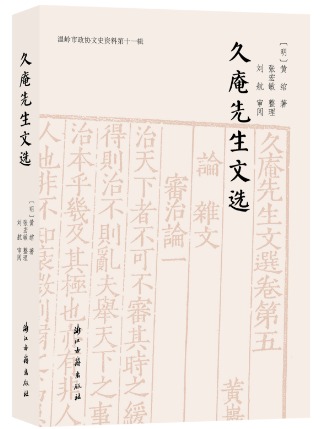 温岭市政协文史资料第十一辑
久庵先生文选
〔明〕黄绾 著
张宏敏 整理
刘航 审阅
久庵先生文選卷第五
黄
論 雜文
審治論一
治天下者不可不審其時之
得則治不得則亂夫舉天下
治本乎幾及其極也
浙江古籍出版社
久庵先生文选
〔明〕黄绾 著
张宏敏 整理
刘航 审阅
浙江古籍出版社